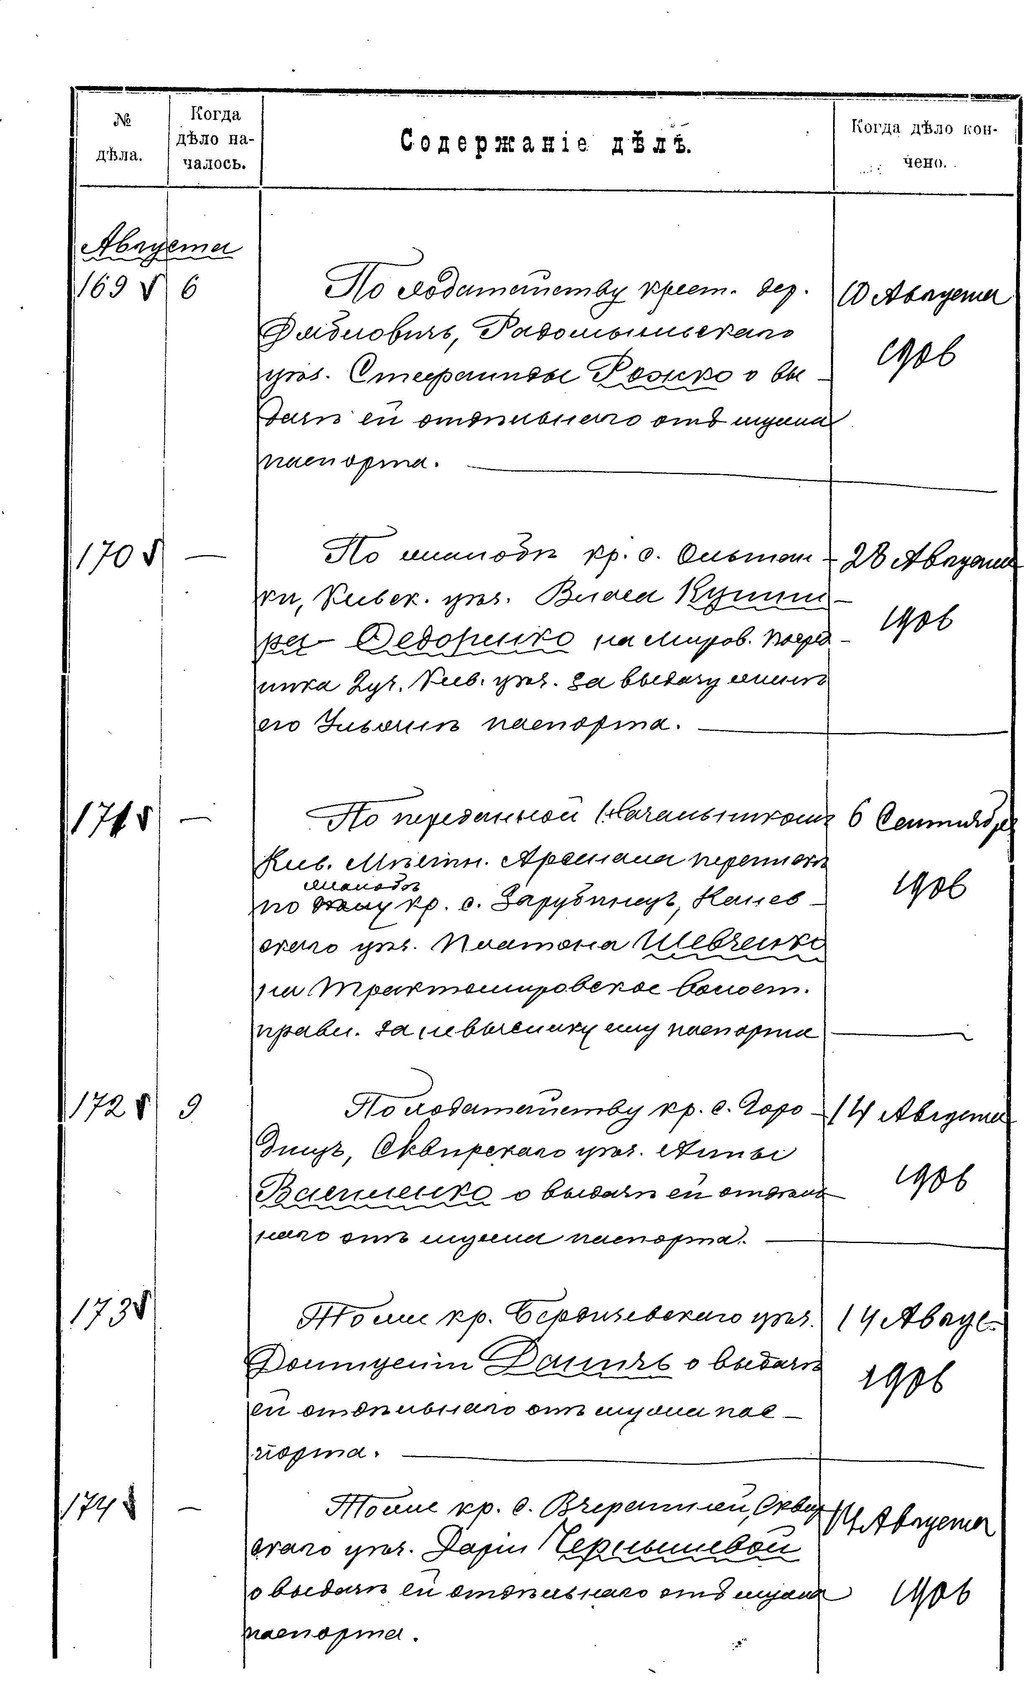 № дѣла.
Когда дѣло началось.
Содержаніе дѣлъ.
Когда дѣло кончено.
Августа
169 6 По ходатайству крест. дер. 10 Августа
Радомысльскаго 1906
уѣз. Стефаниды Рожко о вы-
дачѣ ей отдѣльнаго отъ мужа
паспорта.
170 — По жалобѣ кр. с. Ольшан- 28 Августа
ки, Кіевск. уѣз. Власа Кушни- 1906
ра-Федоренко на миров. посре-
ника 2 уч. Кіев. уѣз. за выдачу женѣ
его Ульянѣ паспорта.
171 — По переданной Начальникомъ 6 Сентября
Кіев. Мѣстн. Арсенала перепискѣ 1906
жалобѣ
по кр. с. Зарубинецъ, Канев-
скаго уѣз. Платона Шевченко
на Трактомировское волост.
правл. за невысылку ему паспорта
172 9 По ходатайству кр. с. Горо- 14 Августа
дищъ, Сквирскаго уѣз. Анны 1906
Василенко о выдачѣ ей отдѣль
наго отъ мужа паспорта.
173 Тоже кр. Бердичевскаго уѣз. 14 Авгус-
о выдачѣ 1906
ей отдѣльнаго отъ мужа пас-
порта.
174 — Тоже кр. с. Вчерайшей, Сквир 14 Августа
скаго уѣз. Даріи Чернышевой 1906
о выдачѣ ей отдѣльнаго отъ мужа
паспорта.